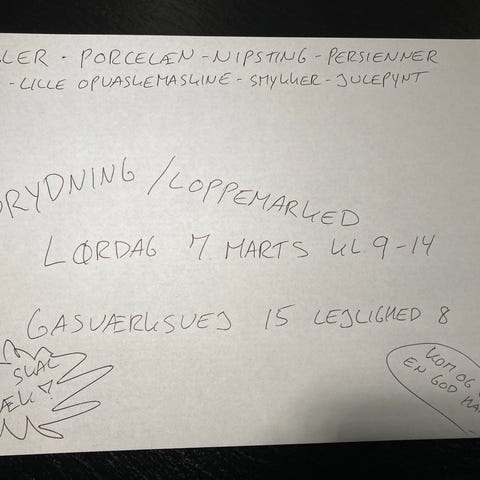 LER - PORCELÆN - NIPSTING - PERSIENNER
- LILLE OPVASKEMASKINE - SMYKKER - JULEPYNT
RYDNING / LOPPEMARKED
LØRDAG 7 MARTS KL 9-14
GASVÆRKSVEJ 15 LEJLIGHED 8
SKAL
ÆK?
KOM OG
EN GOD HA